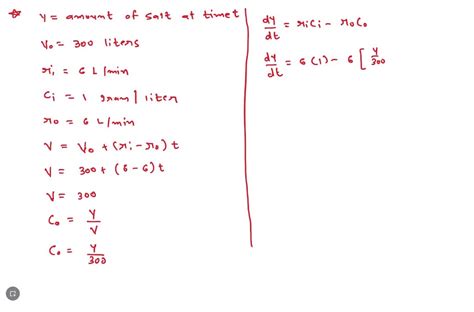 y = amount of salt at time t
V₀ = 300 liters
ri = 6 L/min
Ci = 1 gram/liter
r₀ = 6 L/min
V = V₀ + (ri - r₀) t
V = 300 + (6 - 6) t
V = 300
C₀ = y/V
C₀ = y/300
dy/dt = riCi - r₀C₀
dy/dt = 6 (1) - 6 [ y/300